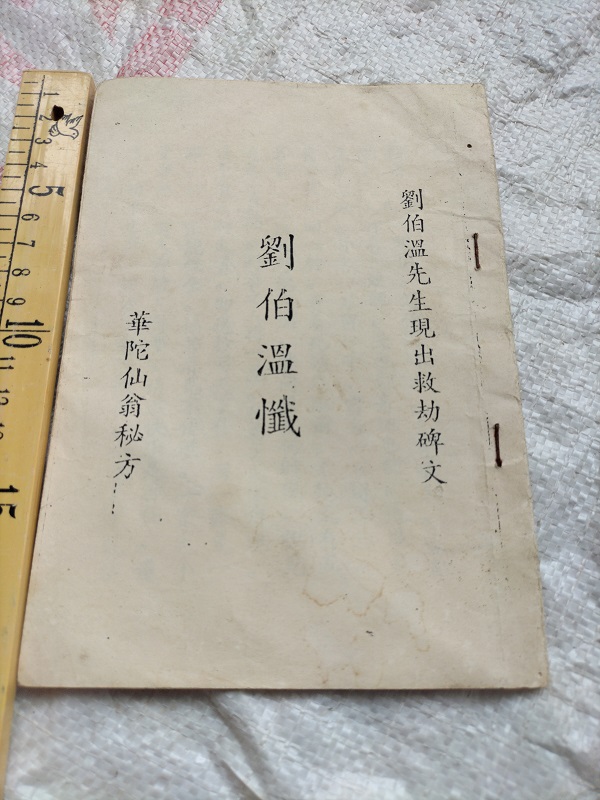 劉伯溫先生現出救劫碑文
劉伯溫懺
華陀仙翁秘方
1
2
3
4
5
6
7
8
9
10
11
12
13
15